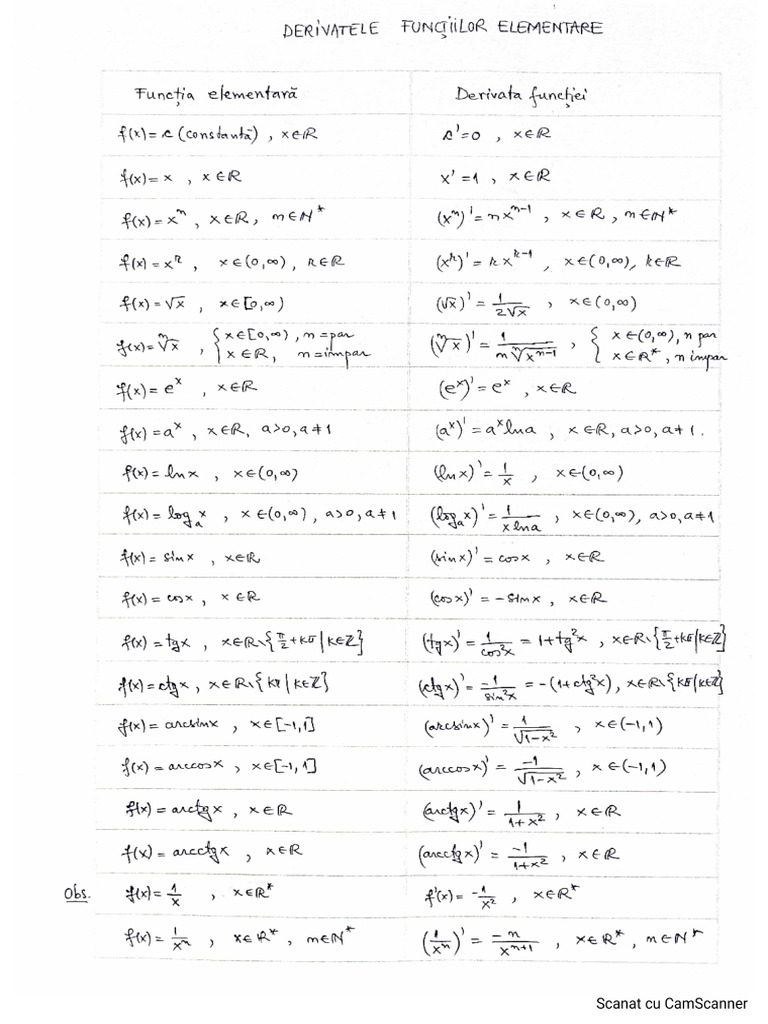 DERIVATELE FUNCȚIILOR ELEMENTARE
Funcția elementară | Derivata funcției
f(x)=c (constantă), x∈ℝ | c'=0, x∈ℝ
f(x)=x, x∈ℝ | x'=1, x∈ℝ
f(x)=xⁿ, x∈ℝ, n∈ℕ* | (xⁿ)'=nxⁿ⁻¹, x∈ℝ, n∈ℕ*
f(x)=x^r, x∈(0,∞), r∈ℝ | (x^r)'=r x^(r-1), x∈(0,∞), r∈ℝ
f(x)=√x, x∈[0,∞) | (√x)'=1/(2√x), x∈(0,∞)
f(x)=ⁿ√x, { x∈[0,∞), n=par | (ⁿ√x)'=1/(n ⁿ√(xⁿ⁻¹)), { x∈(0,∞), n par
x∈ℝ, n=impar | x∈ℝ*, n impar
f(x)=eˣ, x∈ℝ | (eˣ)'=eˣ, x∈ℝ
f(x)=aˣ, x∈ℝ, a>0, a≠1 | (aˣ)'=aˣ ln a, x∈ℝ, a>0, a≠1.
f(x)=ln x, x∈(0,∞) | (ln x)'=1/x, x∈(0,∞)
f(x)=logₐx, x∈(0,∞), a>0, a≠1 | (logₐx)'=1/(x ln a), x∈(0,∞), a>0, a≠1
f(x)=sin x, x∈ℝ | (sin x)'=cos x, x∈ℝ
f(x)=cos x, x∈ℝ | (cos x)'=-sin x, x∈ℝ
f(x)=tg x, x∈ℝ\{π/2+kπ|k∈ℤ} | (tg x)'=1/cos²x=1+tg²x, x∈ℝ\{π/2+kπ|k∈ℤ}
f(x)=ctg x, x∈ℝ\{kπ|k∈ℤ} | (ctg x)'=-1/sin²x=-(1+ctg²x), x∈ℝ\{kπ|k∈ℤ}
f(x)=arcsin x, x∈[-1,1] | (arcsin x)'=1/√(1-x²), x∈(-1,1)
f(x)=arccos x, x∈[-1,1] | (arccos x)'=-1/√(1-x²), x∈(-1,1)
f(x)=arctg x, x∈ℝ | (arctg x)'=1/(1+x²), x∈ℝ
f(x)=arcctg x, x∈ℝ | (arcctg x)'=-1/(1+x²), x∈ℝ
Obs. f(x)=1/x, x∈ℝ* | f'(x)=-1/x², x∈ℝ*
f(x)=1/xⁿ, x∈ℝ*, n∈ℕ* | (1/xⁿ)'=-n/xⁿ⁺¹, x∈ℝ*, n∈ℕ*
Scanat cu CamScanner